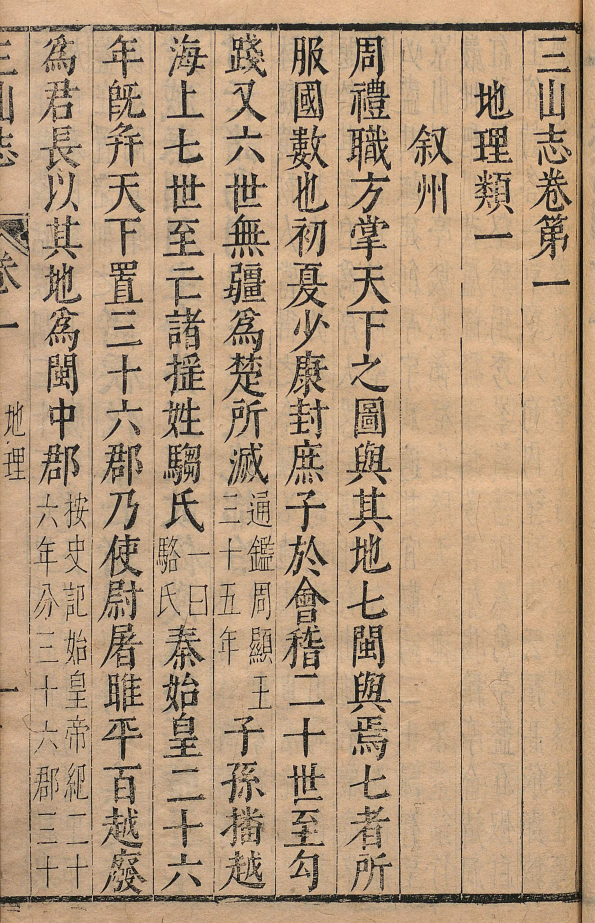 三山志卷第一
地理類一
叙州
周禮職方掌天下之圖與其地七閩與焉七者所
服國數也初夏少康封庶子於會稽二十世至勾
踐又六世無疆爲楚所滅通鑑周顯王三十五年子孫播越
海上七世至亡諸揺姓騶氏一曰駱氏秦始皇二十六
年旣幷天下置三十六郡乃使尉屠雎平百越廢
爲君長以其地爲閩中郡按史記始皇帝紀二十六年分三十六郡三十
三山志 卷一 地理 一